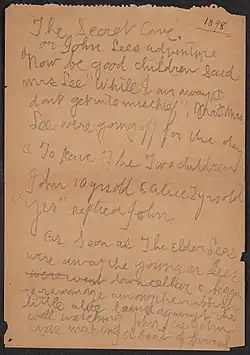 1898
The Secret Cave
or John Lees adventure
"Now be good children" Said
Mrs Lee "While I am away &
dont get into mischief". Mr & Mrs
Lee were going off for the day
& To leave The Two children
John 10 yrs old & Alice 2 yrs old
"Yes" replied John
As Soon as The Elder Lees
were away the younger Lees
went down cellar & began
to rummage among the rubbish
little alice leaned against the
wall watching John. As John
was making a boat of barrel